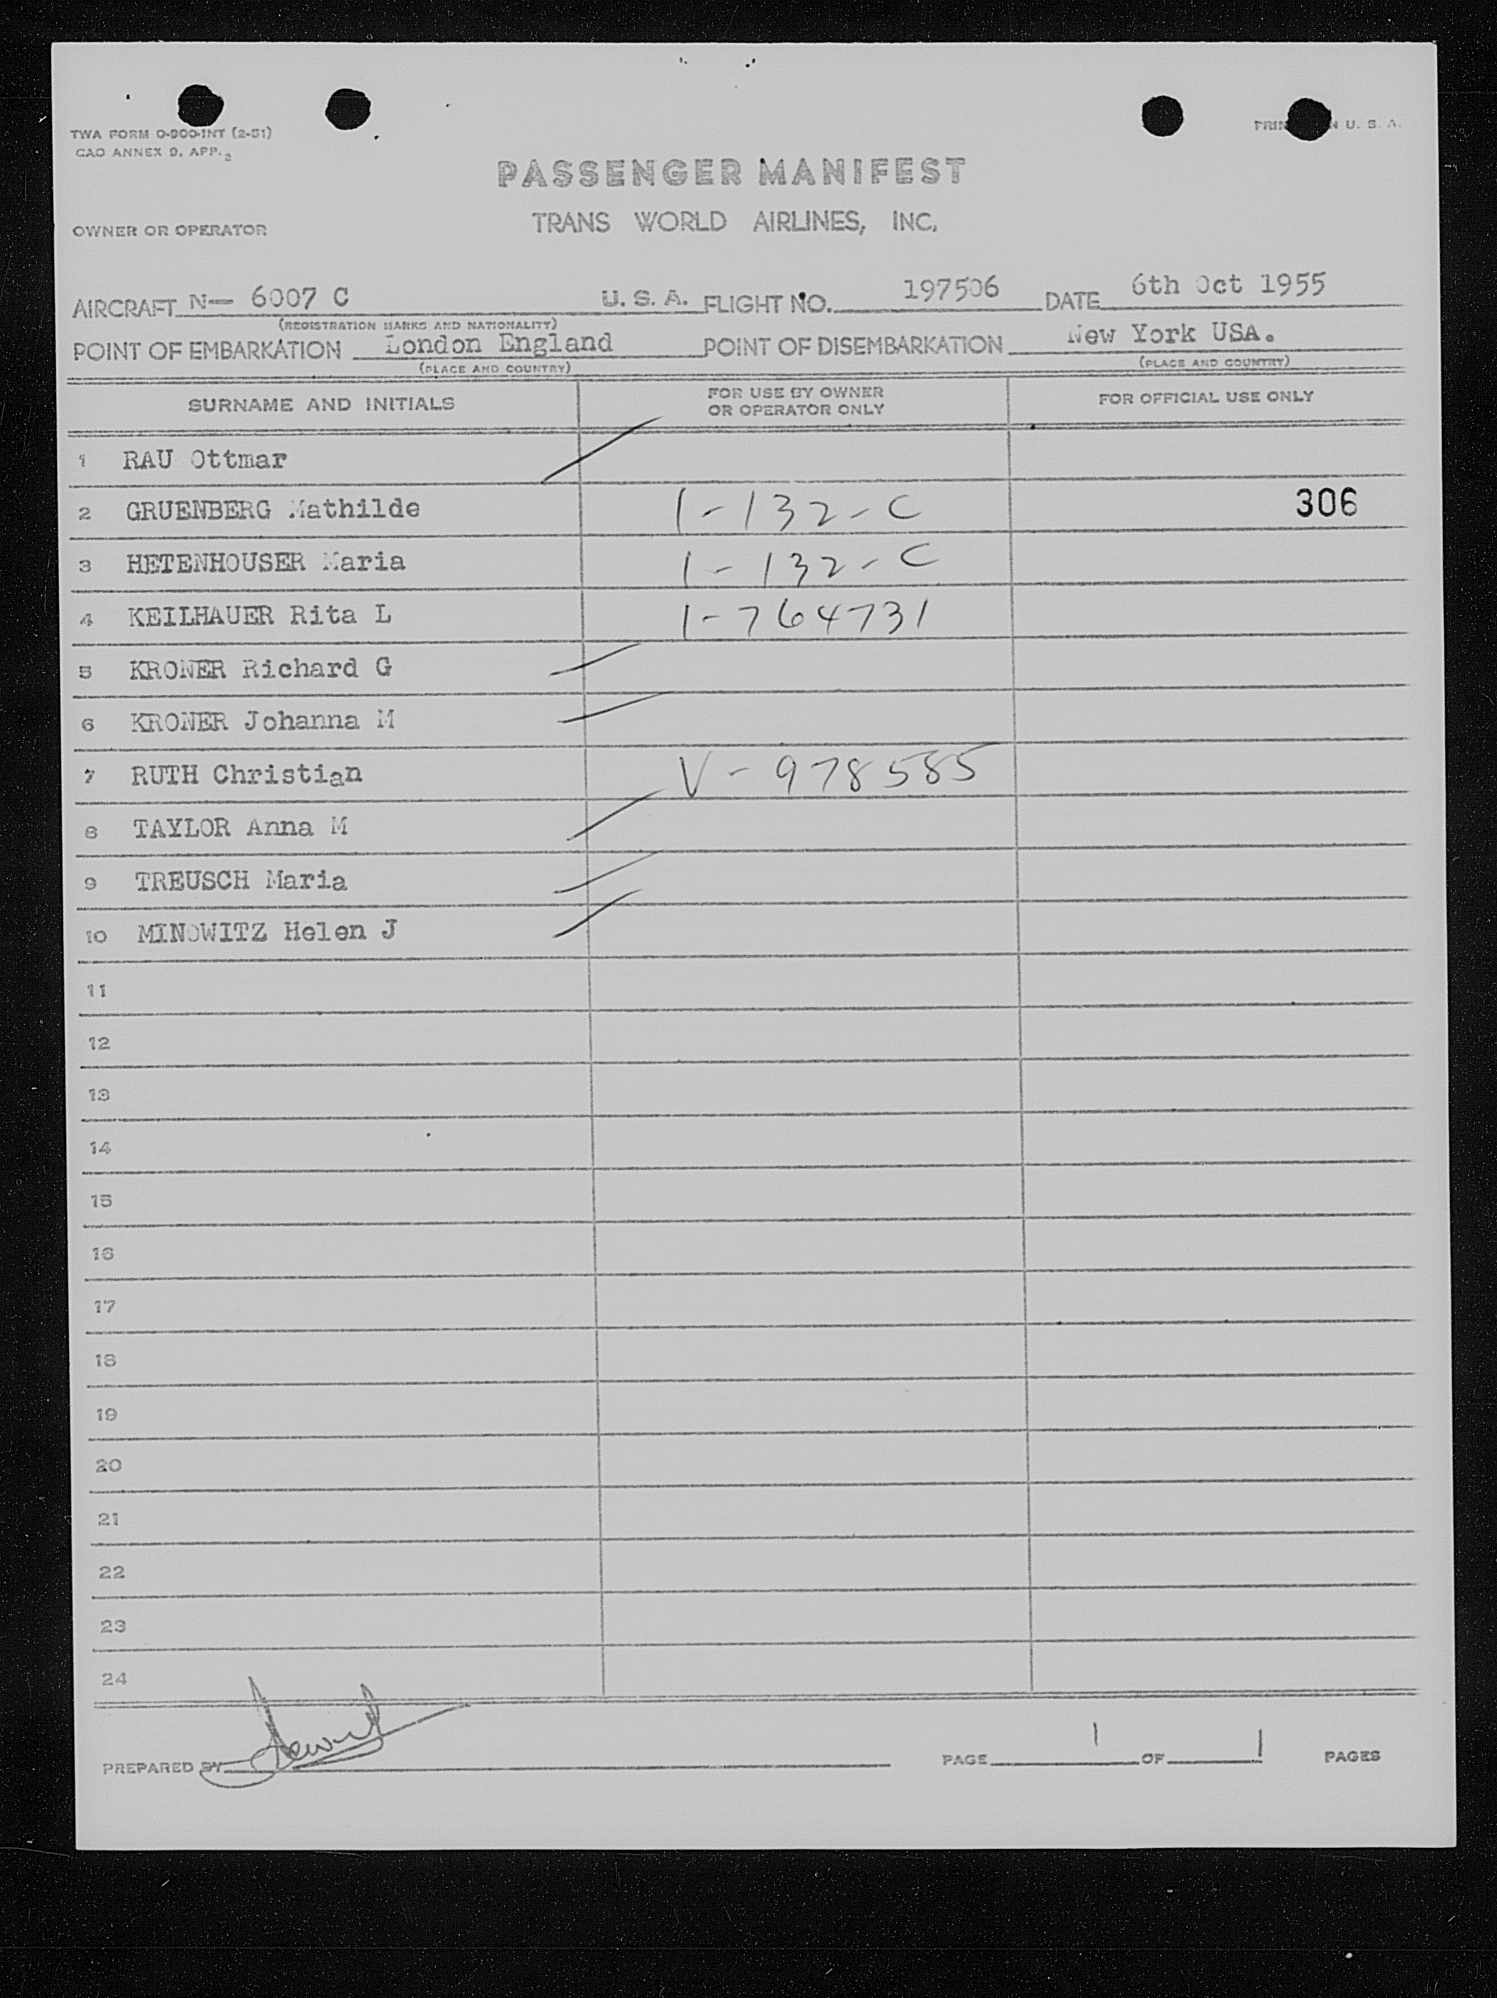 TWA FORM O-900-INT (2-51)
CAO ANNEX 9, APP. 2
U. S. A.
PASSENGER MANIFEST
OWNER OR OPERATOR
TRANS WORLD AIRLINES, INC.
AIRCRAFT N— 6007 C U. S. A. FLIGHT NO. 197506 DATE 6th Oct 1955
(REGISTRATION MARKS AND NATIONALITY)
POINT OF EMBARKATION London England POINT OF DISEMBARKATION New York USA.
(PLACE AND COUNTRY) (PLACE AND COUNTRY)
SURNAME AND INITIALS FOR USE BY OWNER OR OPERATOR ONLY FOR OFFICIAL USE ONLY
1 RAU Ottmar
2 GRUENBERG Mathilde 1-132-C 306
3 HETENHOUSER Maria 1-132-C
4 KEILHAUER Rita L 1-764731
5 KRONER Richard G
6 KRONER Johanna M
7 RUTH Christian V-978585
8 TAYLOR Anna M
9 TREUSCH Maria
10 MINOWITZ Helen J
11
12
13
14
15
16
17
18
19
20
21
22
23
24
PREPARED BY PAGE 1 OF 1 PAGES